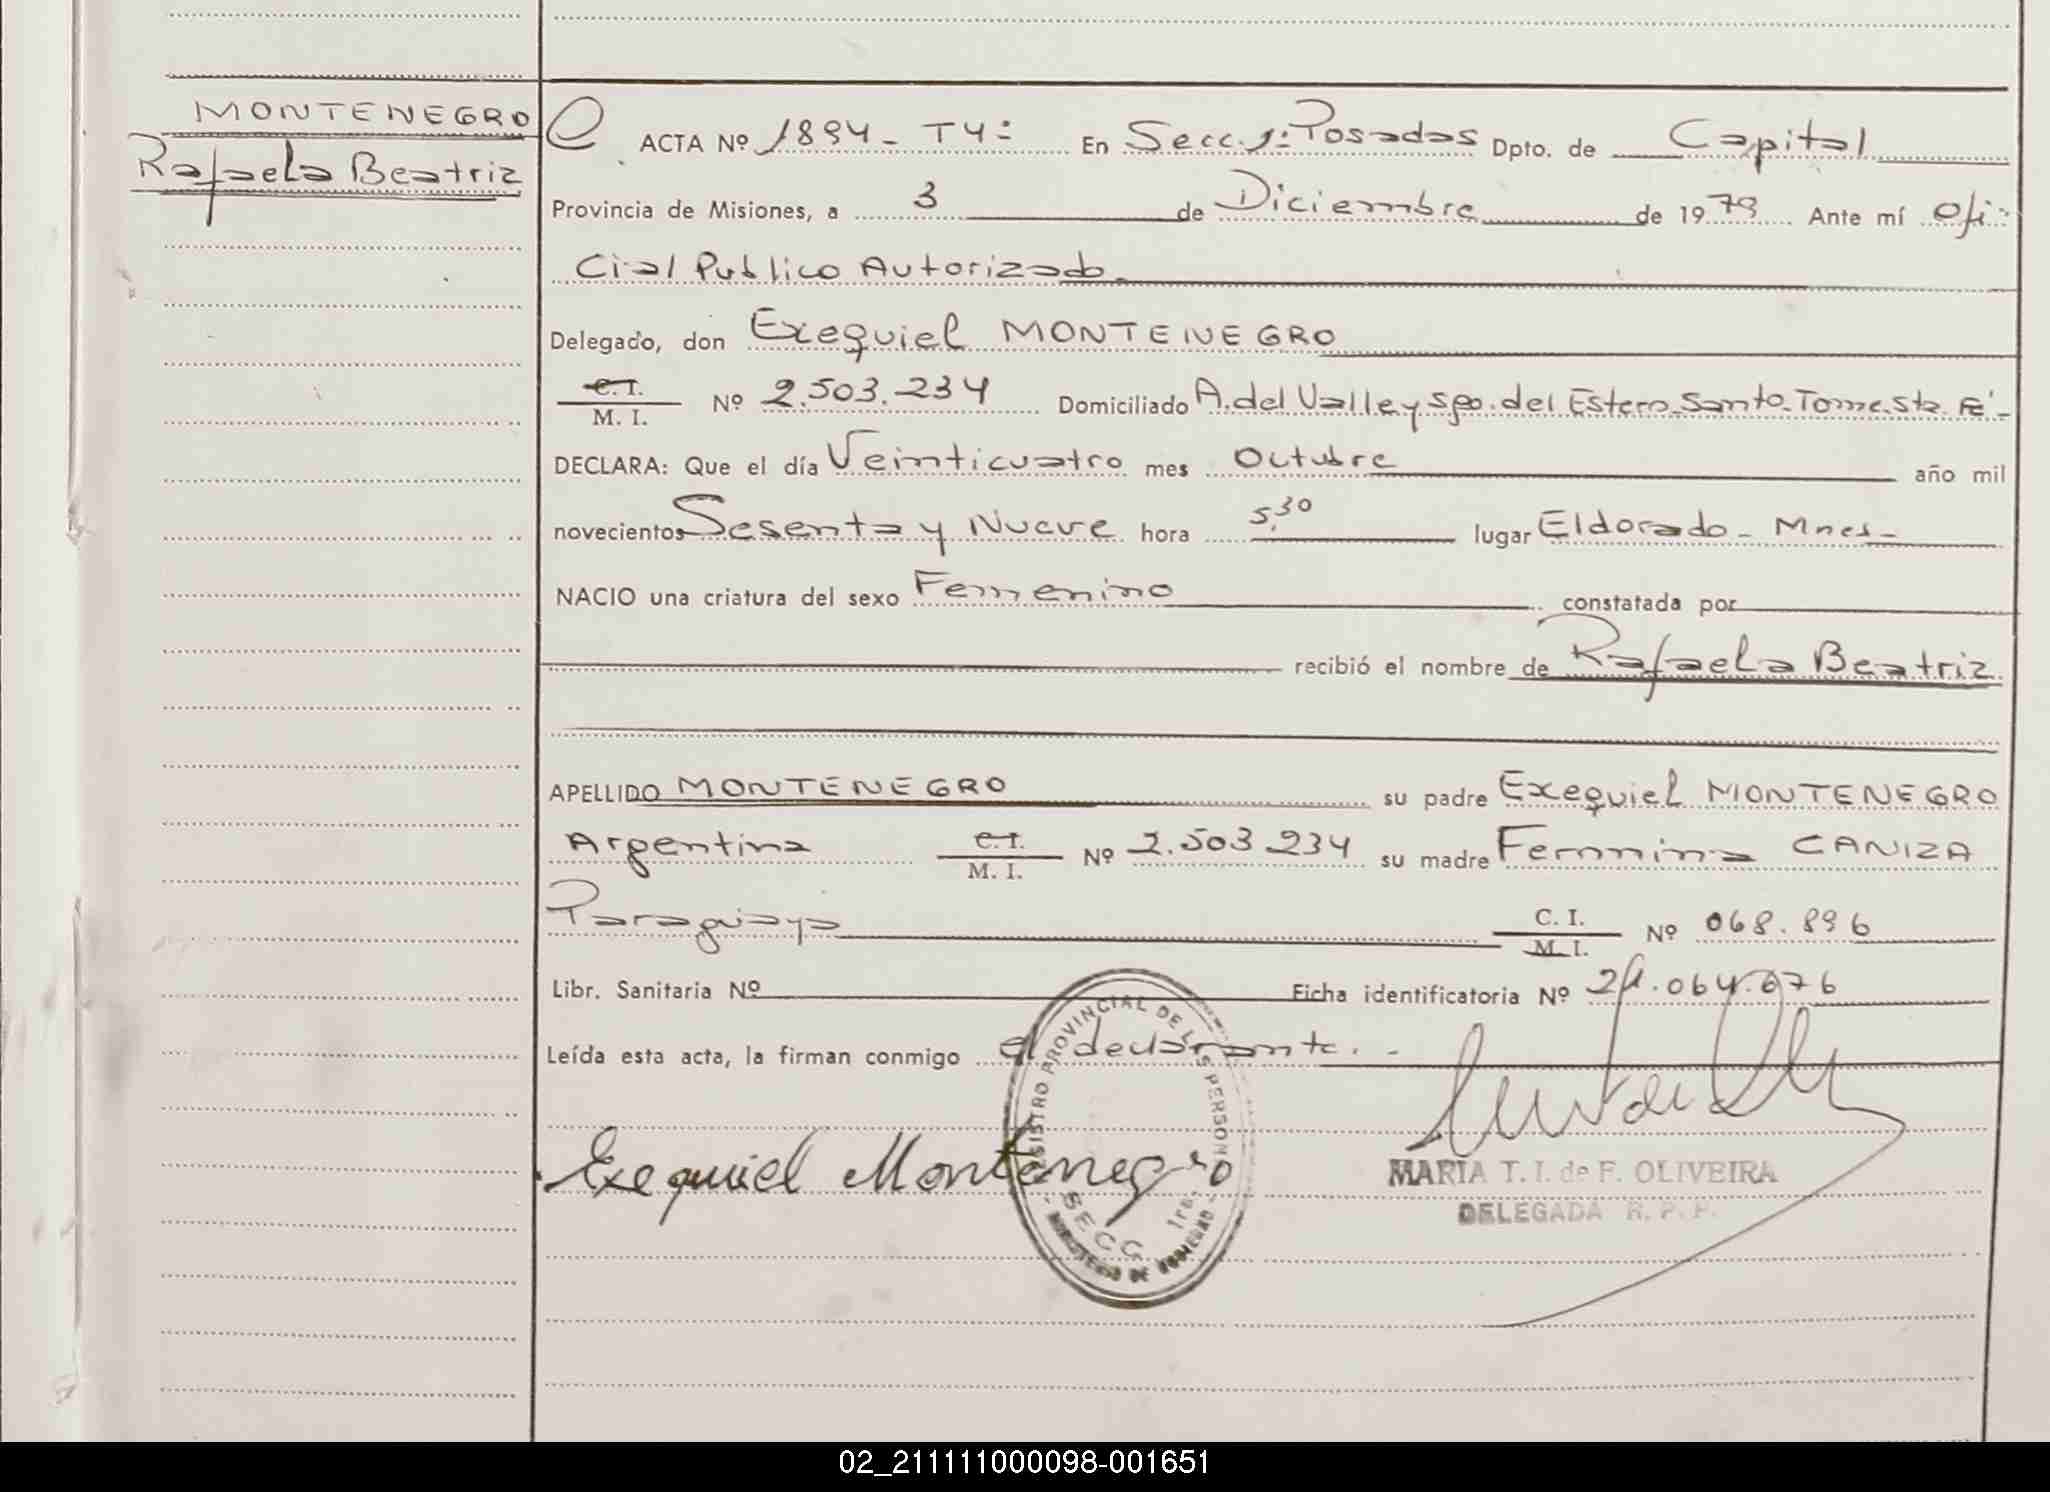 MONTENEGRO
Rafaela Beatriz
ACTA Nº 1894 - T4: En Secc 1: Posadas Dpto. de Capital
Provincia de Misiones, a 3 de Diciembre de 1979 Ante mí Ofi-
cial Publico Autorizado
Delegado, don Exequiel MONTENEGRO
C. I. / M. I. Nº 2.503.234 Domiciliado A. del Valle y Sgo. del Estero Santo Tome Sta. Fé -
DECLARA: Que el día Veinticuatro mes Octubre año mil
novecientos Sesenta y Nueve hora 5,30 lugar Eldorado - Mnes -
NACIO una criatura del sexo Femenino constatada por
recibió el nombre de Rafaela Beatriz
APELLIDO MONTENEGRO su padre Exequiel MONTENEGRO
Argentina C. I. / M. I. Nº 2.503.234 su madre Fermina CANIZA
Paraguaya C. I. / M. I. Nº 068.896
Libr. Sanitaria Nº Ficha identificatoria Nº 21.064.676
Leída esta acta, la firman conmigo el declarante. -
Exequiel Montenegro
REGISTRO PROVINCIAL DE LAS PERSONAS
SECC. 1ra.
MINISTERIO DE GOBIERNO
MARIA T. I. de F. OLIVEIRA
DELEGADA R. P. P.
02_211111000098-001651